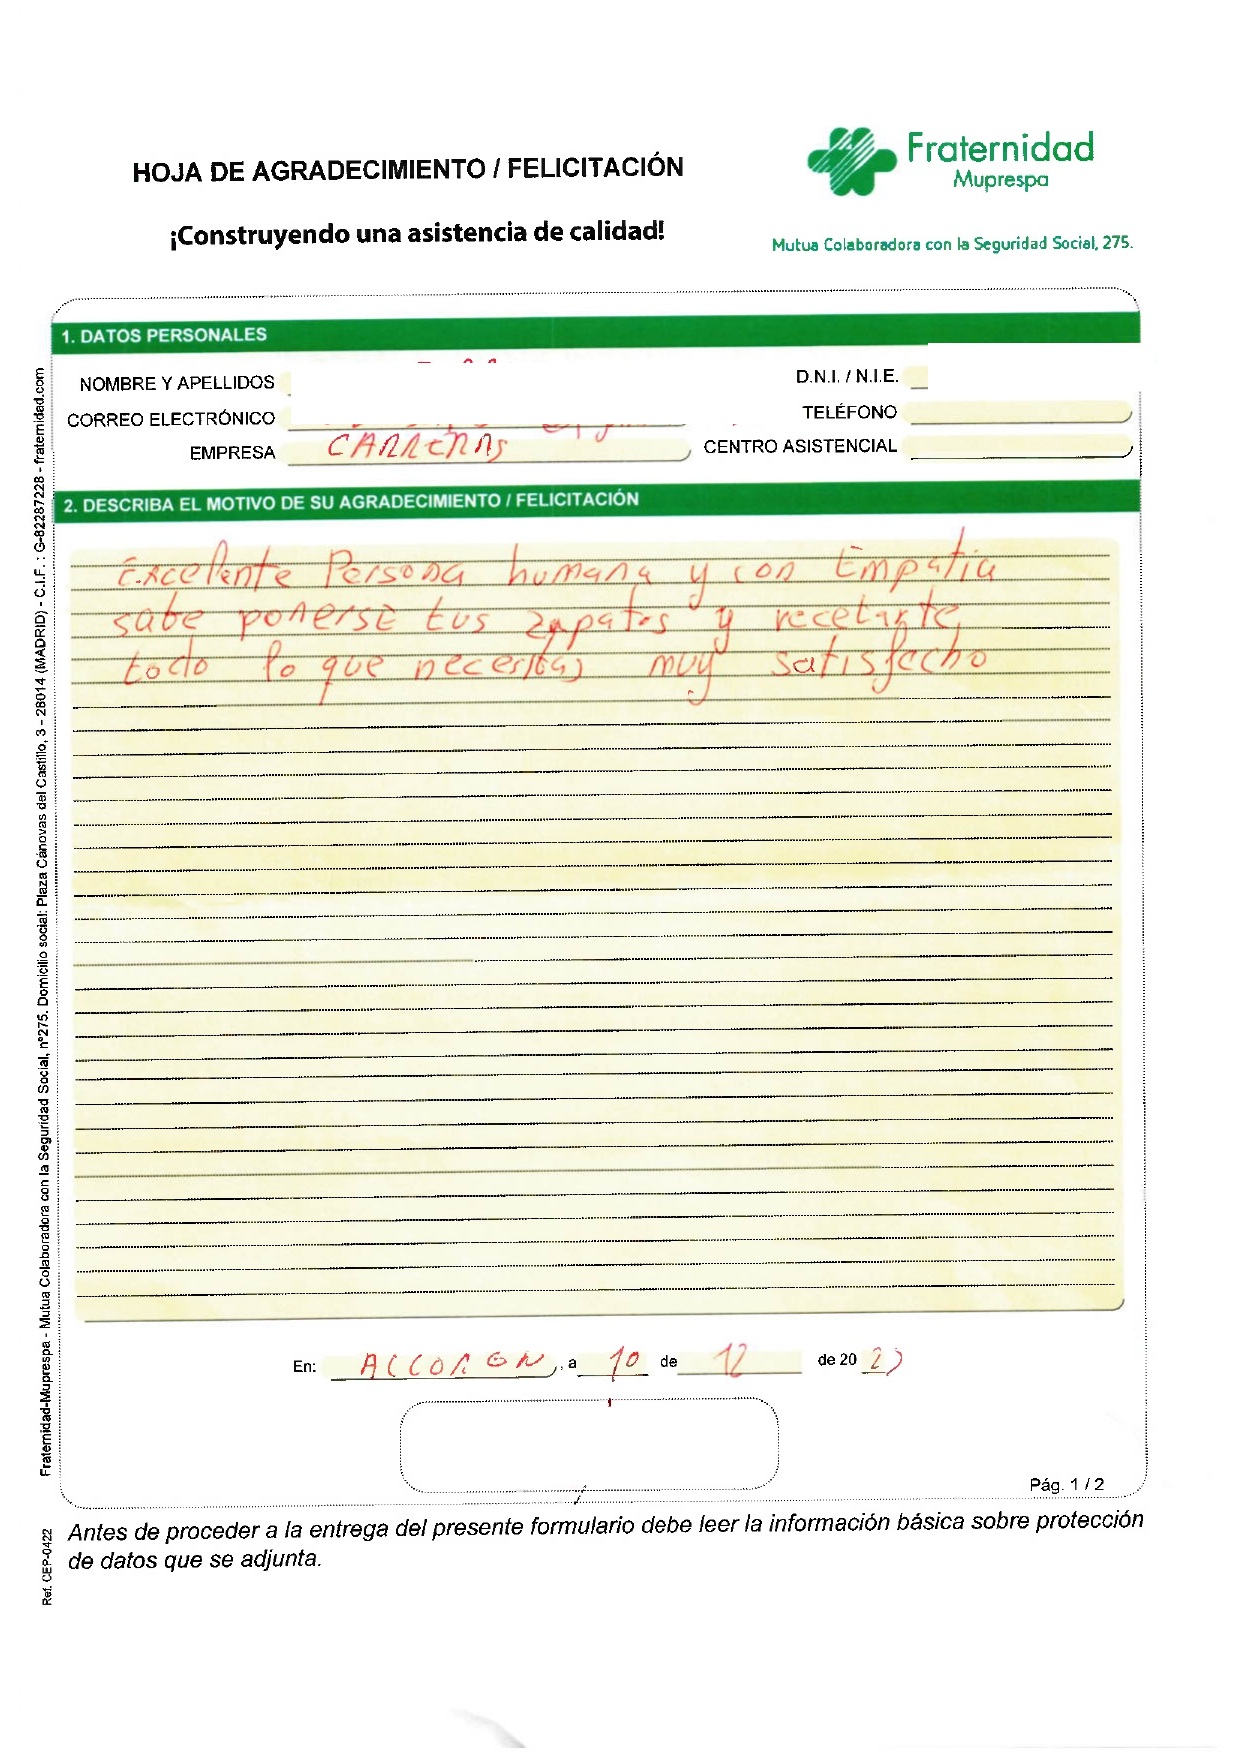 HOJA DE AGRADECIMIENTO / FELICITACIÓN
¡Construyendo una asistencia de calidad!
Fraternidad
Muprespa
Mutua Colaboradora con la Seguridad Social, 275.
1. DATOS PERSONALES
NOMBRE Y APELLIDOS
D.N.I. / N.I.E.
CORREO ELECTRÓNICO
TELÉFONO
EMPRESA CARRERAS
CENTRO ASISTENCIAL
2. DESCRIBA EL MOTIVO DE SU AGRADECIMIENTO / FELICITACIÓN
Excelente Persona humana y con Empatia
sabe ponerse tus zapatos y recetarte
todo lo que necesitas muy satisfecho
En: , a 10 de 12 de 20
Pág. 1 / 2
Antes de proceder a la entrega del presente formulario debe leer la información básica sobre protección
de datos que se adjunta.
Fraternidad-Muprespa - Mutua Colaboradora con la Seguridad Social, nº275. Domicilio social: Plaza Cánovas del Castillo, 3 - 28014 (MADRID) - C.I.F. : G-82287228 - fraternidad.com
Ref. CEP-0422